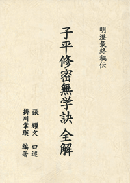 明澄最終秘伝
子平修密無学訣 全解
張耀文 口述
掛川掌瑛 編著